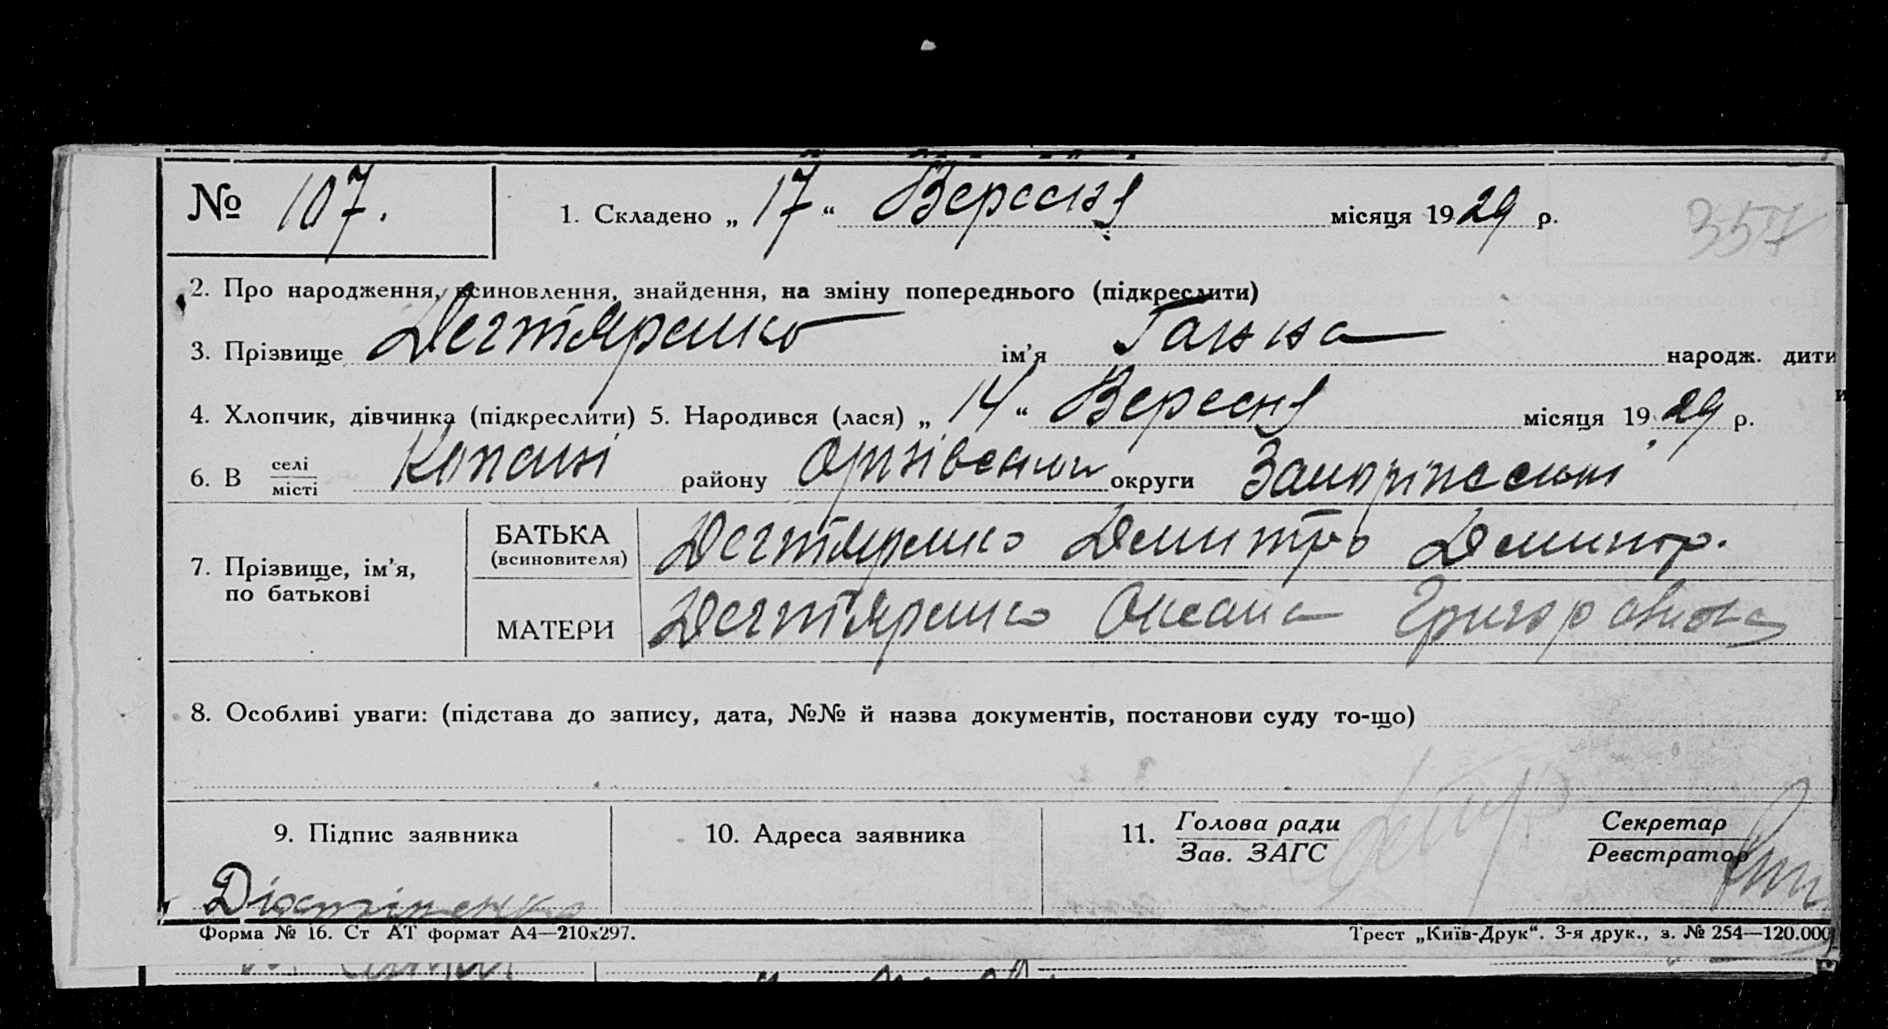 № 107. 1. Складено „ 17 “ Вересня місяця 1929 р.
357
2. Про народження, всиновлення, знайдення, на зміну попереднього (підкреслити)
3. Прізвище Дегтяренко ім’я Ганна народж. дити
4. Хлопчик, дівчинка (підкреслити) 5. Народився (лася) „ 14 “ Вересня місяця 1929 р.
6. В селі/місті Копані району Оріхівський округи Запоріжський
7. Прізвище, ім’я, по батькові
БАТЬКА (всиновителя) Дегтяренко Дмитро Дмитр.
МАТЕРИ Дегтяренко Оксана Григоровна
8. Особливі уваги: (підстава до запису, дата, №№ й назва документів, постанови суду то-що)
9. Підпис заявника
10. Адреса заявника
11. Голова ради / Зав. ЗАГС
Секретар / Реєстратор
Форма № 16. Ст АТ формат А4—210х297.
Трест „Київ-Друк“. 3-я друк., з. № 254—120.000